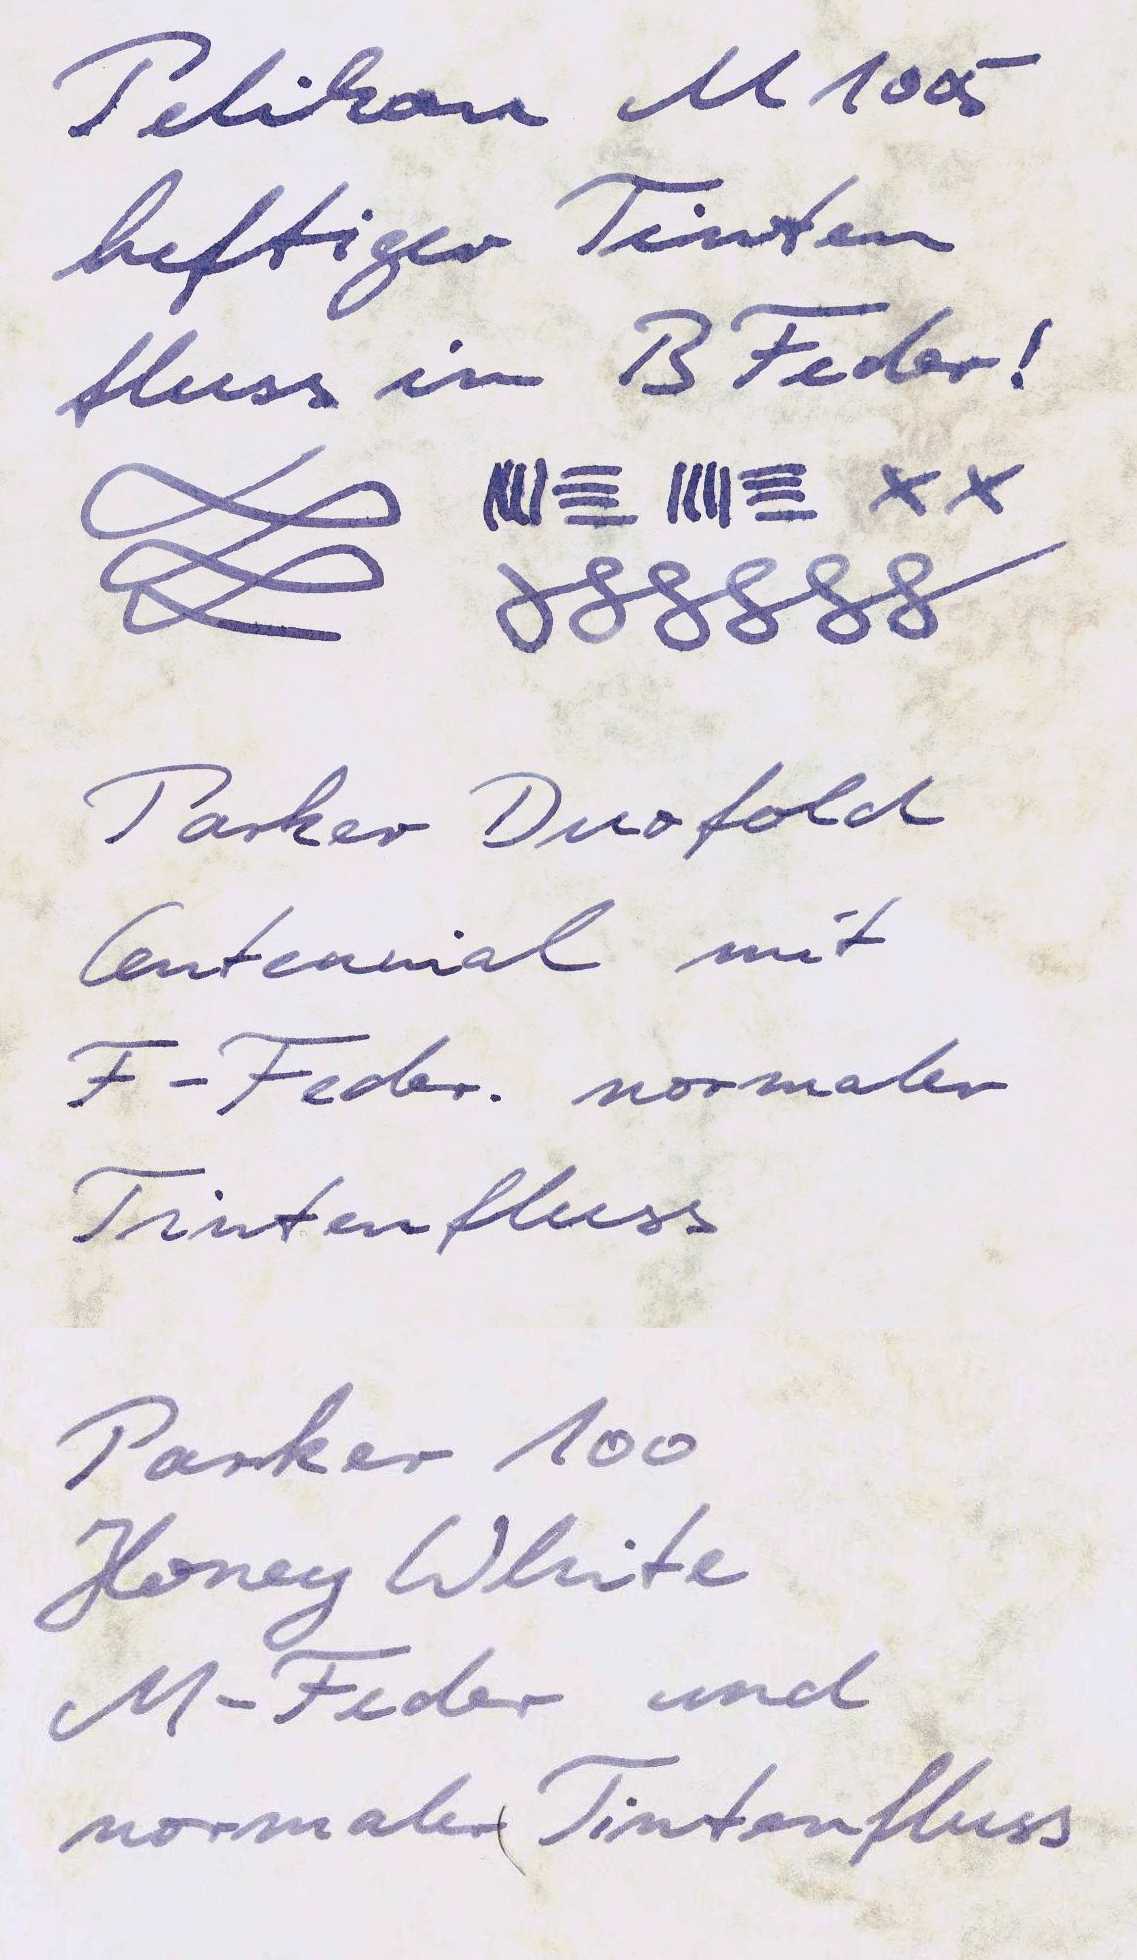 Pelikan M 1005
heftiger Tinten
fluss in B Feder!
Parker Duofold
Centennial mit
F-Feder. normaler
Tintenfluss
Parker 100
Honey White
M-Feder und
normaler Tintenfluss